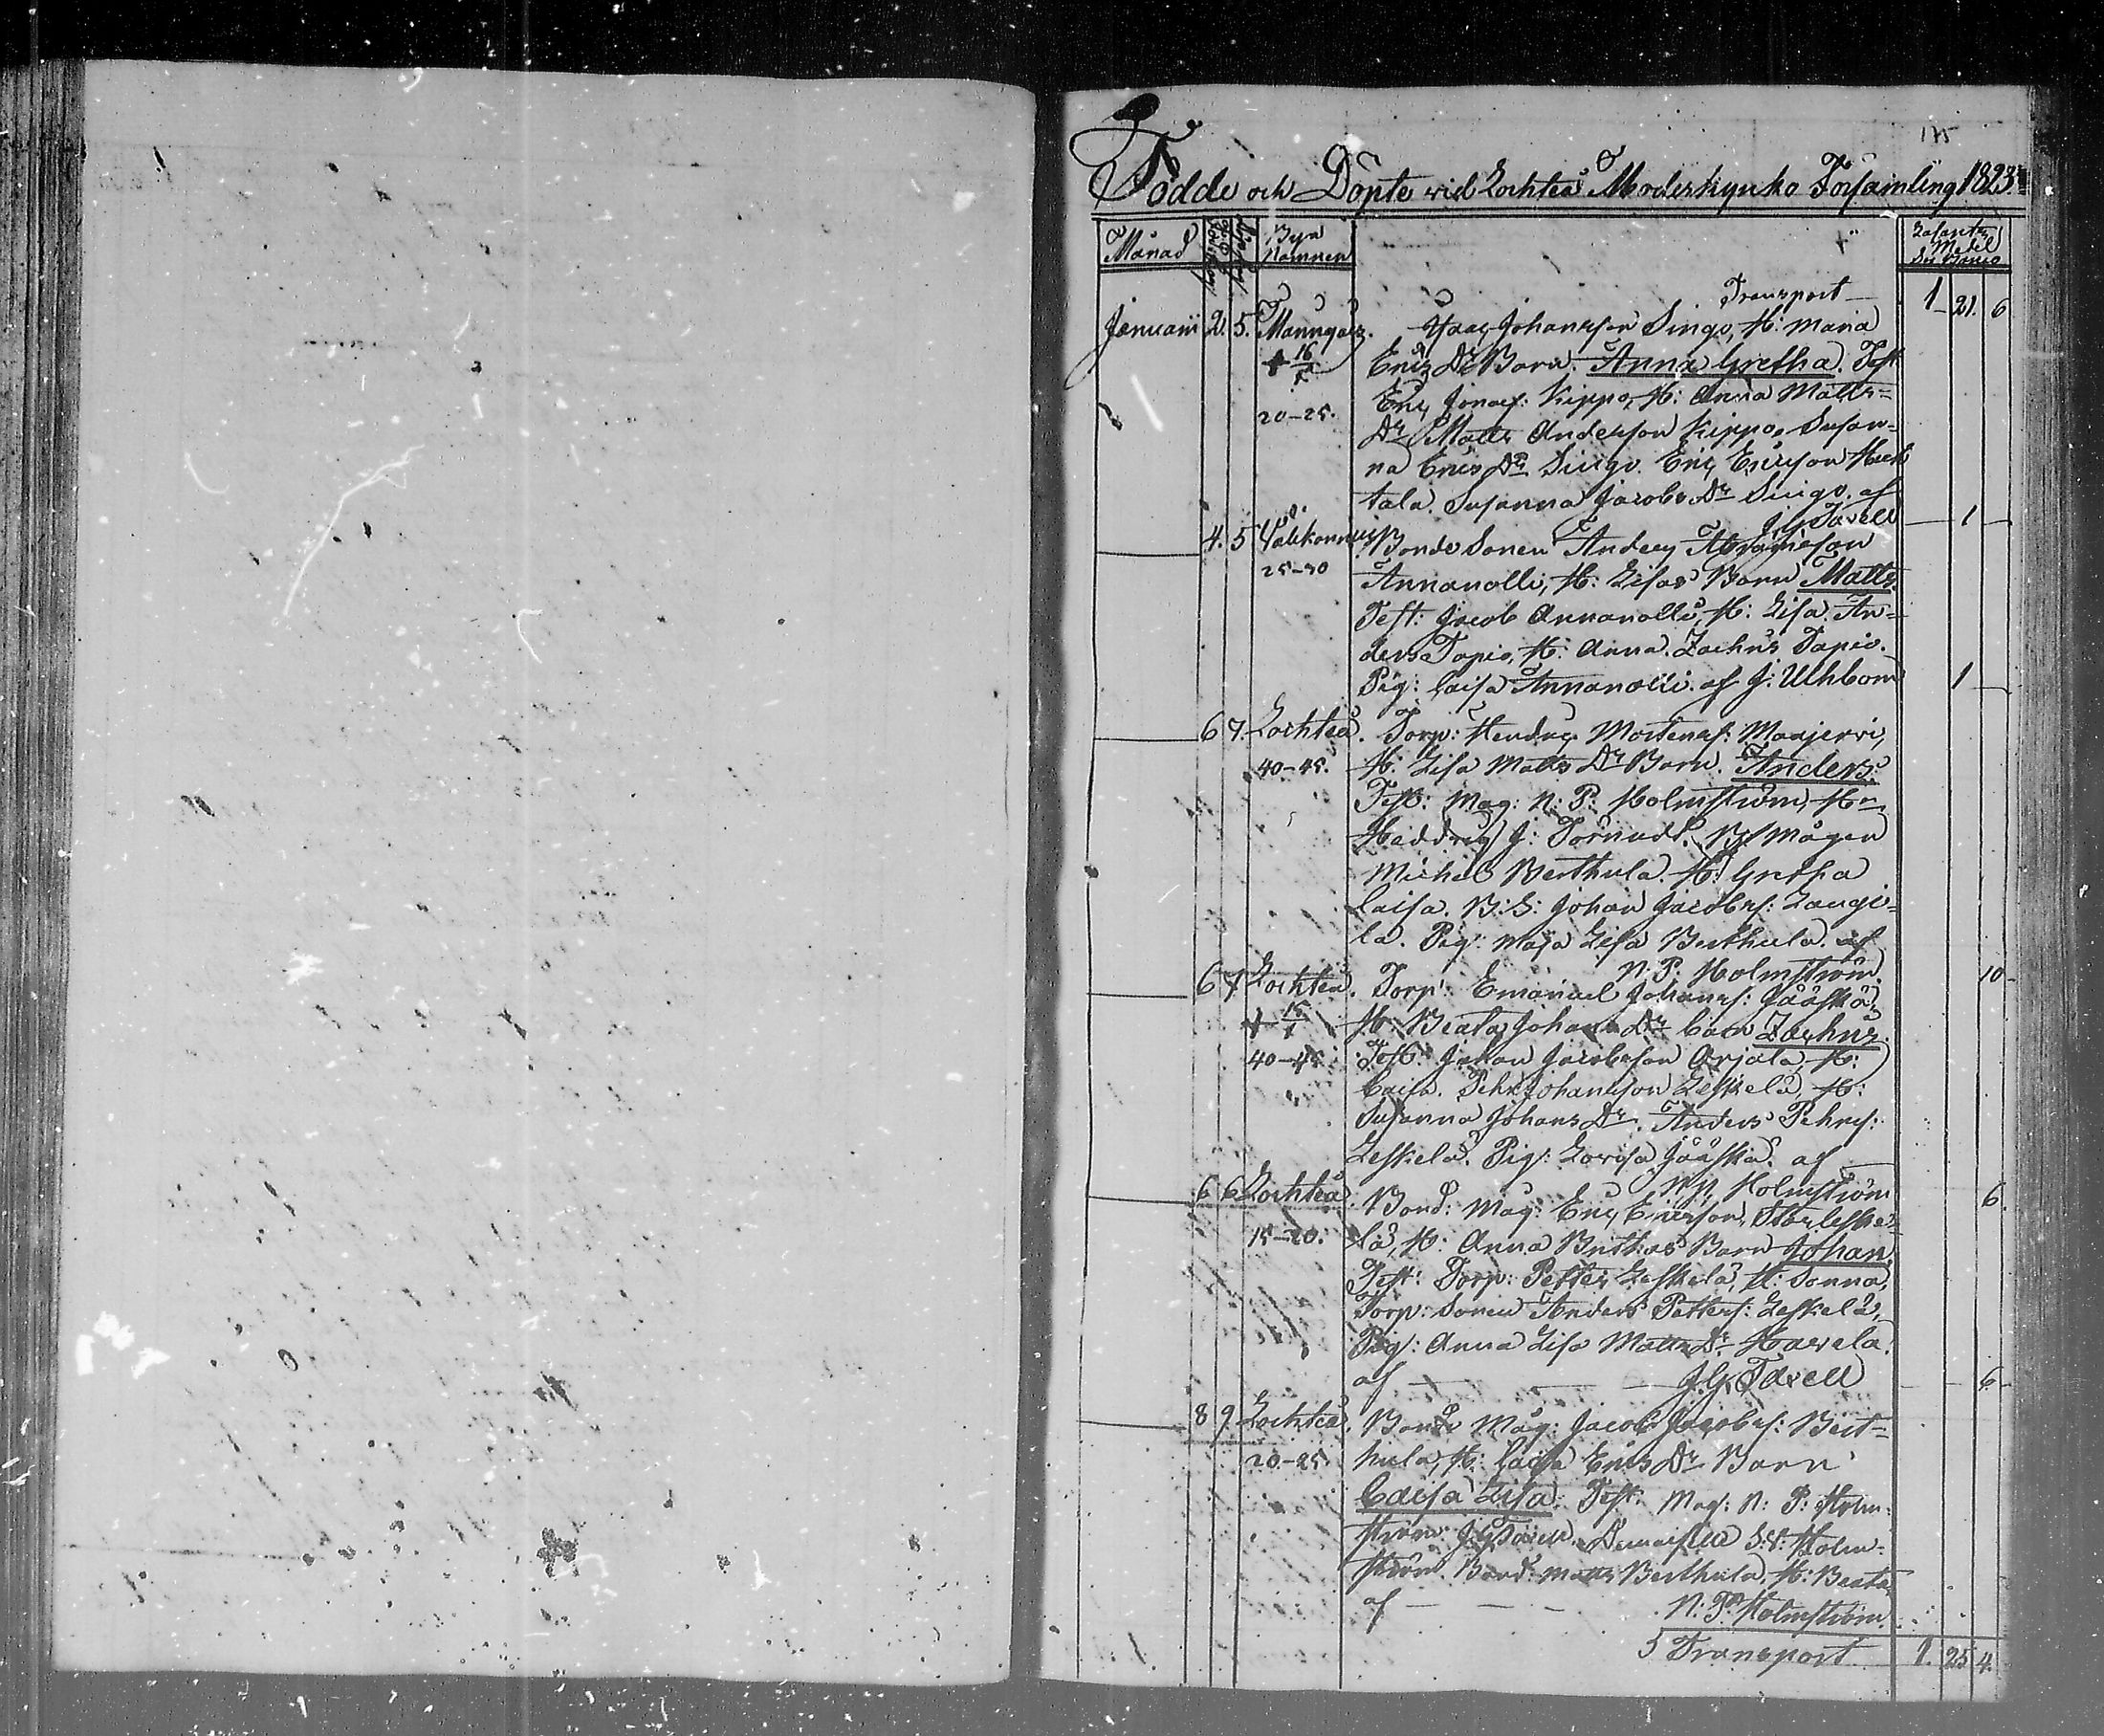 175
Födde och Döpte vid Lochteå Moderkyrko Församling 1823.
Månad
Byn Namnen
Lasaretts Medel
Transport 1 21. 6
Januarii 2. 5. Mannqvis. Isaac Johansson Singo, H: Maria
16/1 Erics Dr Barn. Anna Gretha. Test
Eric Jonas: Kippo, H: Anna Matts-
20-25. Dr Matts Andersson Kippo, Susan-
na Erics Dr Singo. Eric Ericsson
tala. Susanna Jacobs Dr Singo. af
J. G. Favell 1
4. 5 Wälikannus Bonde Sonen Anders
25-30 Annanolli, H: Lisas Barn Matts.
Test: Jacob Annanolli, H: Lisa. An-
ders Tapio, H: Anna. Zachris Tapio.
Pig: Caisa Annanolli. af J: Uhlbom 1
6 7. Lochteå. Torp: Hendric Mortens: Maajervi,
40-45. H: Lisa Matts Dr Barn. Anders.
Test: Mag: N: P: Holmström,
Heddvig J: Törnudd. B: Mågen
Michel Berthula. H: Gretha
Caisa. B: S: Johan Jacobs: Langi-
la. Pig: Maja Lisa Berthula. af
N: P: Holmström. 10
6 7 Lochteå. Torp: Emanuel Johans: Jääskä,
15/1 H: Beata Johans Dr barn Zachris
40-45 Test: Johan Jacobsson Orjala, H:
Caisa. Pehr Johansson Leskelä, H:
Susanna Johans Dr. Anders Pehrs:
Leskelä. Pig: Lovisa Jääskä. af
N. P. Holmström 6.
6 6 Lochteå Bond: Måg: Eric Ericsson, Storleske-
15-20. lä, H: Anna Britas Barn Johan.
Test: Torp: Petter Leskelä, H: Sanna,
Torp: Sonen Anders Petters: Leskelä,
Pig: Anna Lisa Matts Dr Havela.
af J. G. Favell 6
8 9. Lochteå. Bonde Måg: Jacob Jacobs: Bert-
20-25 hula, H: Caisa Erics Dr Barn
Caisa Lisa. Test. Mag: N: P: Holm-
ström J. G. Favell. Demoiselle S: Holm-
ström. Bond: Matts Berthula, H: Beata
af N: P: Holmström.
5 Transport 1. 25 4.